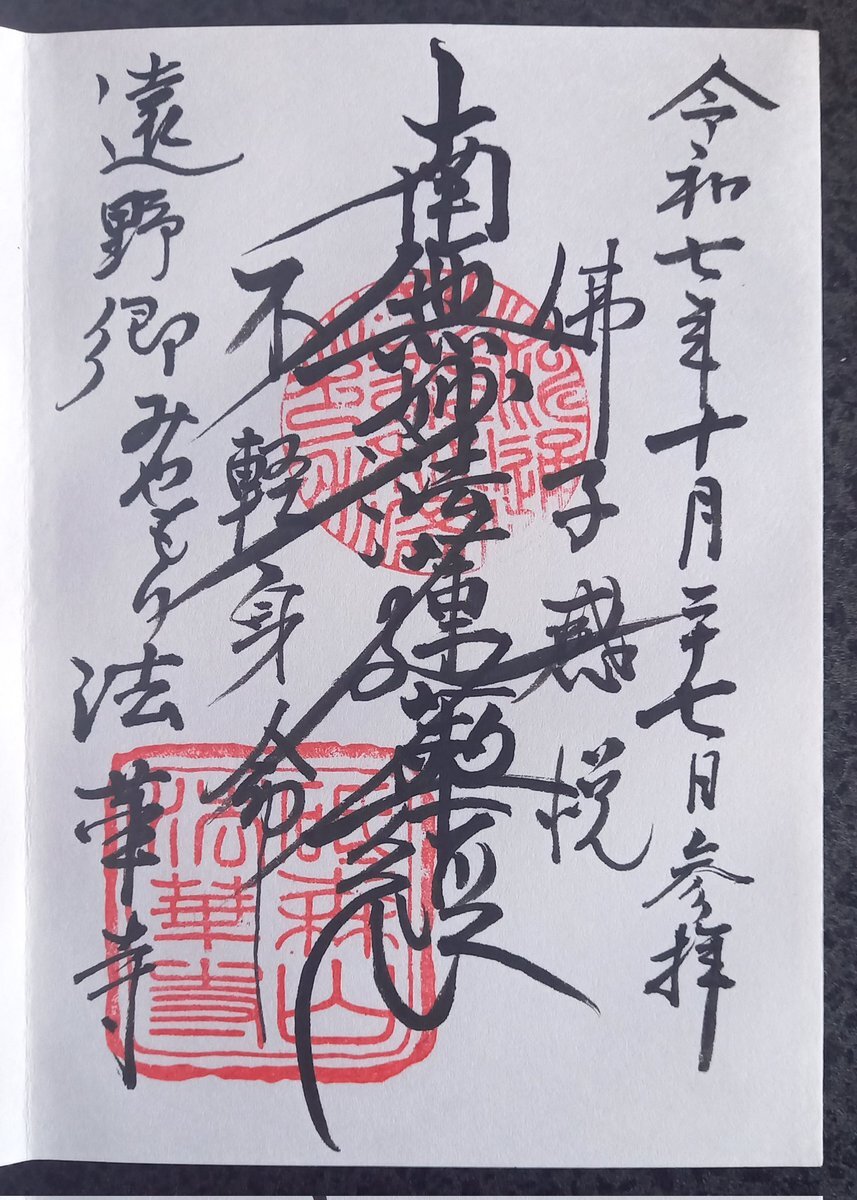 令和七年十月二十七日参拝
佛子 悦
南無妙法蓮華経
不軽身命
遠野郷みやもり法華寺
砥森山
法華寺